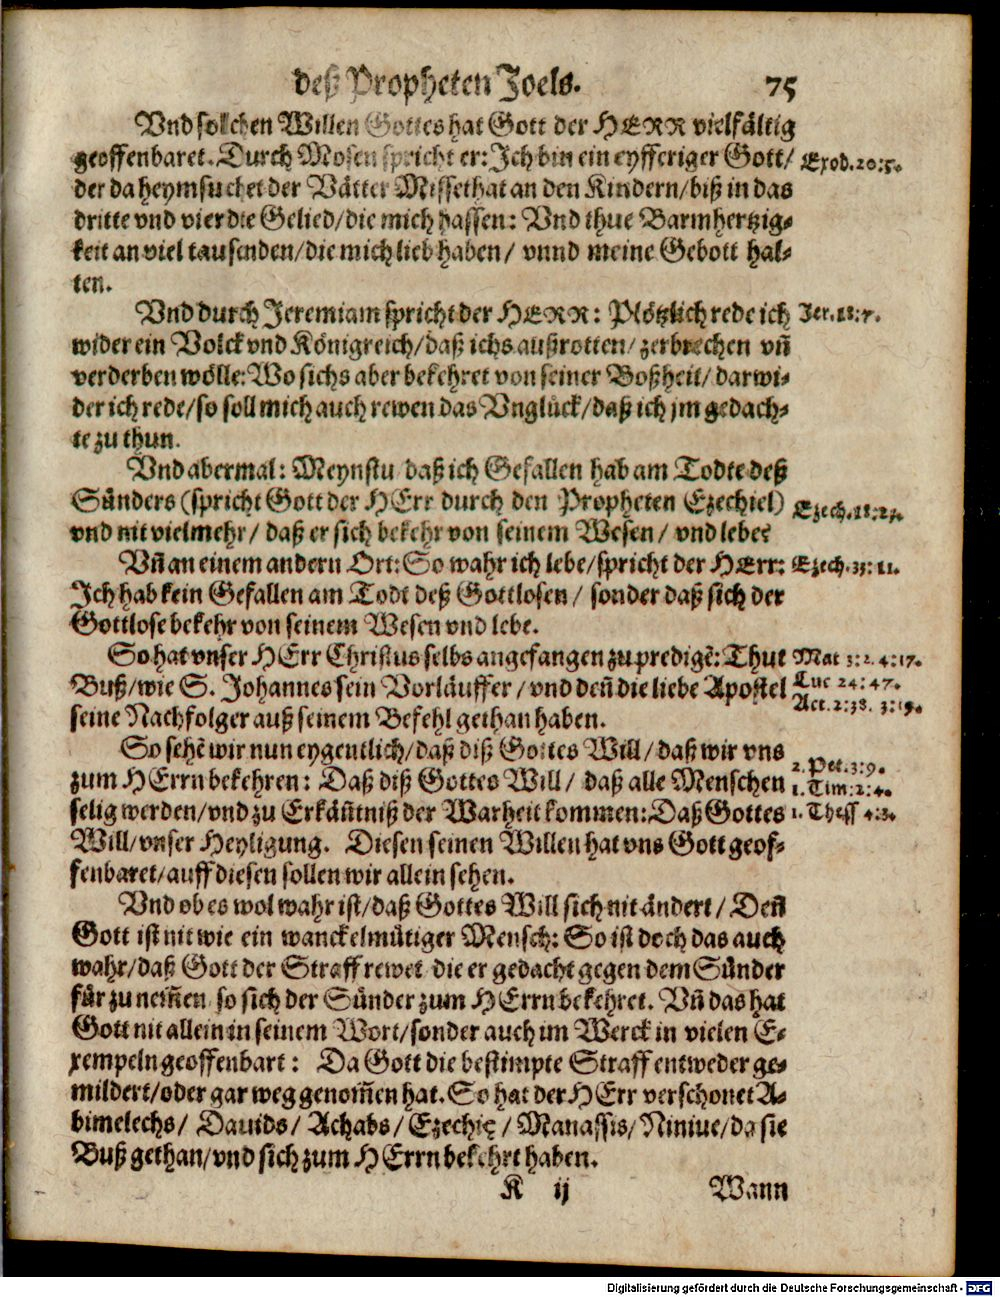 deß Propheten Joels. 75
Vnd solchen Willen Gottes hat Gott der HERR vielfältig
geoffenbaret. Durch Mosen spricht er: Ich bin ein eyfferiger Gott/ Exod. 20:5.
der da heymsuchet der Vätter Missethat an den Kindern/ biß in das
dritte vnd vierdte Gelied/ die mich hassen: Vnd thue Barmhertzig-
keit an viel tausenden/ die mich lieb haben/ vnnd meine Gebott hal-
ten.
Vnd durch Jeremiam spricht der HERR: Plötzlich rede ich Jer. 18:7.
wider ein Volck vnd Königreich/ daß ichs außrotten/ zerbrechen vñ
verderben wölle: Wo sichs aber bekehret von seiner Boßheit/ darwi-
der ich rede/ so soll mich auch rewen das Vnglück/ daß ich jm gedach-
te zu thun.
Vnd abermal: Meynstu daß ich Gefallen hab am Todte deß
Sünders (spricht Gott der HErr durch den Propheten Ezechiel) Ezech. 18:23.
vnd nit vielmehr/ daß er sich bekehr von seinem Wesen/ vnd lebe?
Vñ an einem andern Ort: So wahr ich lebe/ spricht der HErr: Ezech. 33:11.
Ich hab kein Gefallen am Todt deß Gottlosen/ sonder daß sich der
Gottlose bekehr von seinem Wesen vnd lebe.
So hat vnser HErr Christus selbs angefangen zu predigẽ: Thut Mat 3:2. 4:17.
Buß/ wie S. Johannes sein Vorläuffer/ vnd deñ die liebe Apostel Luc 24:47.
seine Nachfolger auß seinem Befehl gethan haben. Act. 2:38. 3:19.
So sehẽ wir nun eygentlich/ daß diß Gottes Will/ daß wir vns
zum HErrn bekehren: Daß diß Gottes Will/ daß alle Menschen 2. Pet. 3:9. 1. Tim: 2:4.
selig werden/ vnd zu Erkäñtniß der Warheit kommen: Daß Gottes 1. Thess 4:3.
Will/ vnser Heyligung. Diesen seinen Willen hat vns Gott geof-
fenbaret/ auff diesen sollen wir allein sehen.
Vnd ob es wol wahr ist/ daß Gottes Will sich nit ändert/ Deñ
Gott ist nit wie ein wanckelmütiger Mensch: So ist doch das auch
wahr/ daß Gott der Straff rewet die er gedacht gegen dem Sünder
für zu nem̃en so sich der Sünder zum HErrn bekehret. Vñ das hat
Gott nit allein in seinem Wort/ sonder auch im Werck in vielen E-
xempeln geoffenbart: Da Gott die bestimpte Straff entweder ge-
mildert/ oder gar weg genom̃en hat. So hat der HErr verschonet A-
bimelechs/ Dauids/ Achabs/ Ezechię/ Manassis/ Niniue/ da sie
Buß gethan/ vnd sich zum HErrn bekehrt haben.
K ij Wann
Digitalisierung gefördert durch die Deutsche Forschungsgemeinschaft - DFG